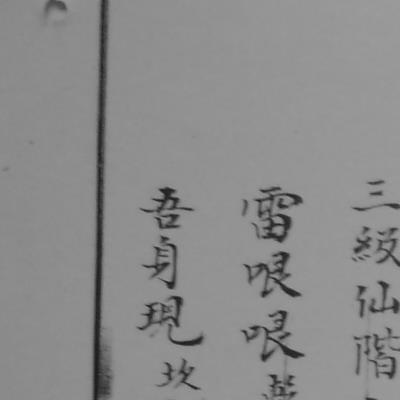 三級仙階
雷哏哏
吾身現坎